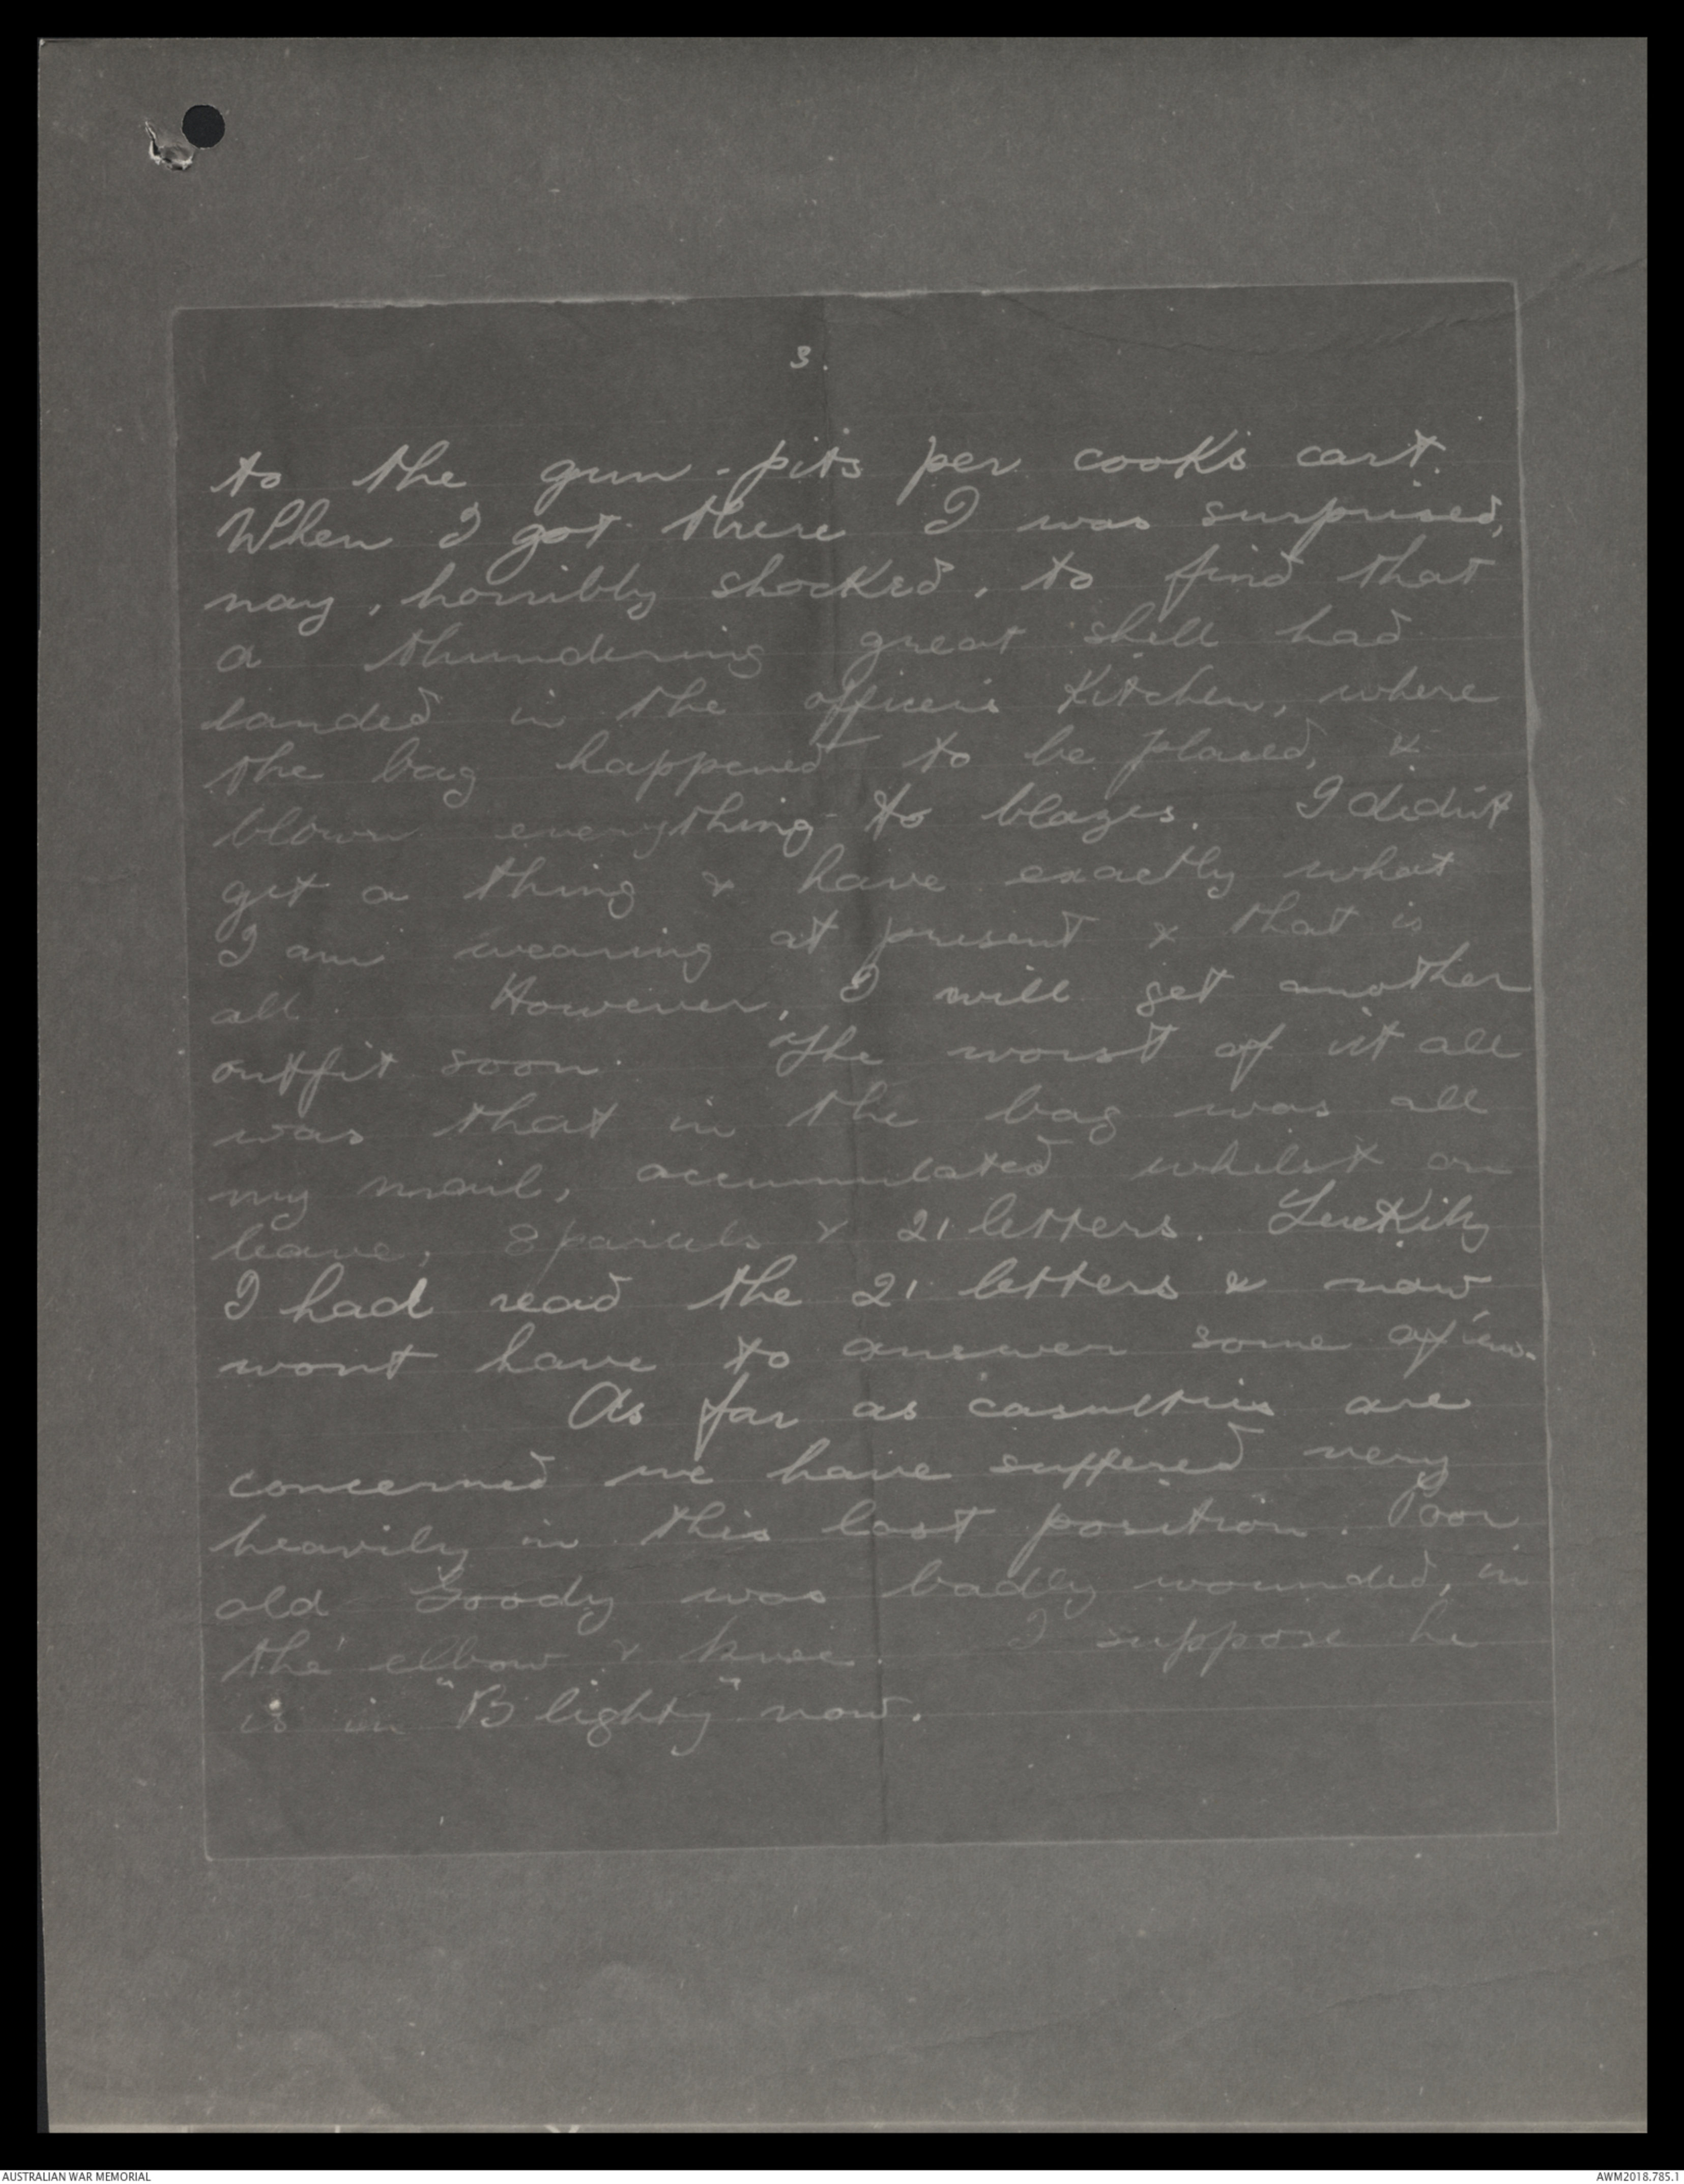 3.
to the gun-pits per cook's cart.
When I got there I was surprised,
nay, horribly shocked, to find that
a thundering great shell had
landed in the officer's kitchen, where
the bag happened to be placed, &
blown everything to blazes. I didn't
get a thing & have exactly what
I am wearing at present & that is
all. However, I will get another
outfit soon. The worst of it all
was that in the bag was all
my mail, accumulated whilst on
leave, 8 parcels & 21 letters. Luckily
I had read the 21 letters & now
wont have to answer some of 'em.
As far as casulties are
concerned we have suffered very
heavily in this last position. Poor
old Goody was badly wounded, in
the elbow & knee. I suppose he
is in "Blighty" now.
AUSTRALIAN WAR MEMORIAL
AWM2018.785.1